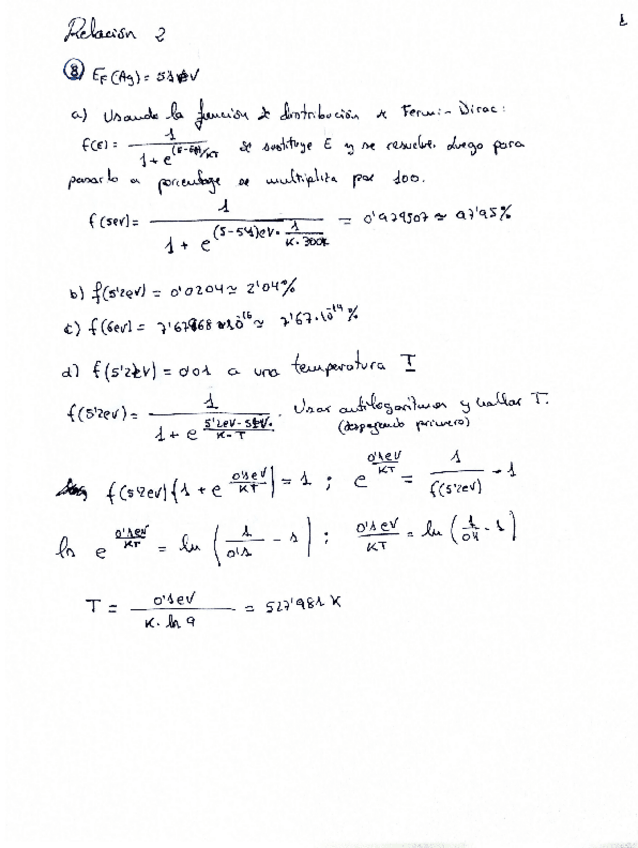 1
Relación 2
⑧ E_F(Ag) = 5'1 eV
a) Usando la función de distribución de Fermi-Dirac:
f(E) = 1 / (1 + e^((E-EF)/KT)) se sustituye E y se resuelve. Luego para
pasarlo a porcentage se multiplica por 100.
f(5eV) = 1 / (1 + e^((5-5'1)eV · 1/(K·300K))) = 0'979507 ≃ 97'95%
b) f(5'2eV) = 0'0204 ≃ 2'04%
c) f(6eV) = 7'67968·10^-16 ≃ 7'67·10^-14 %
d) f(5'2eV) = 0'01 a una temperatura T
f(5'2eV) = 1 / (1 + e^((5'2eV-5'1eV)/(K·T))). Usar antilogaritmos y hallar T.
(despejando primero)
f(5'2eV) (1 + e^(0'1eV/KT)) = 1 ; e^(0'1eV/KT) = 1/f(5'2eV) - 1
ln e^(0'1eV/KT) = ln (1/0'1 - 1) ; 0'1eV/KT = ln (1/0'1 - 1)
T = 0'1eV / (K · ln 9) = 527'981 K